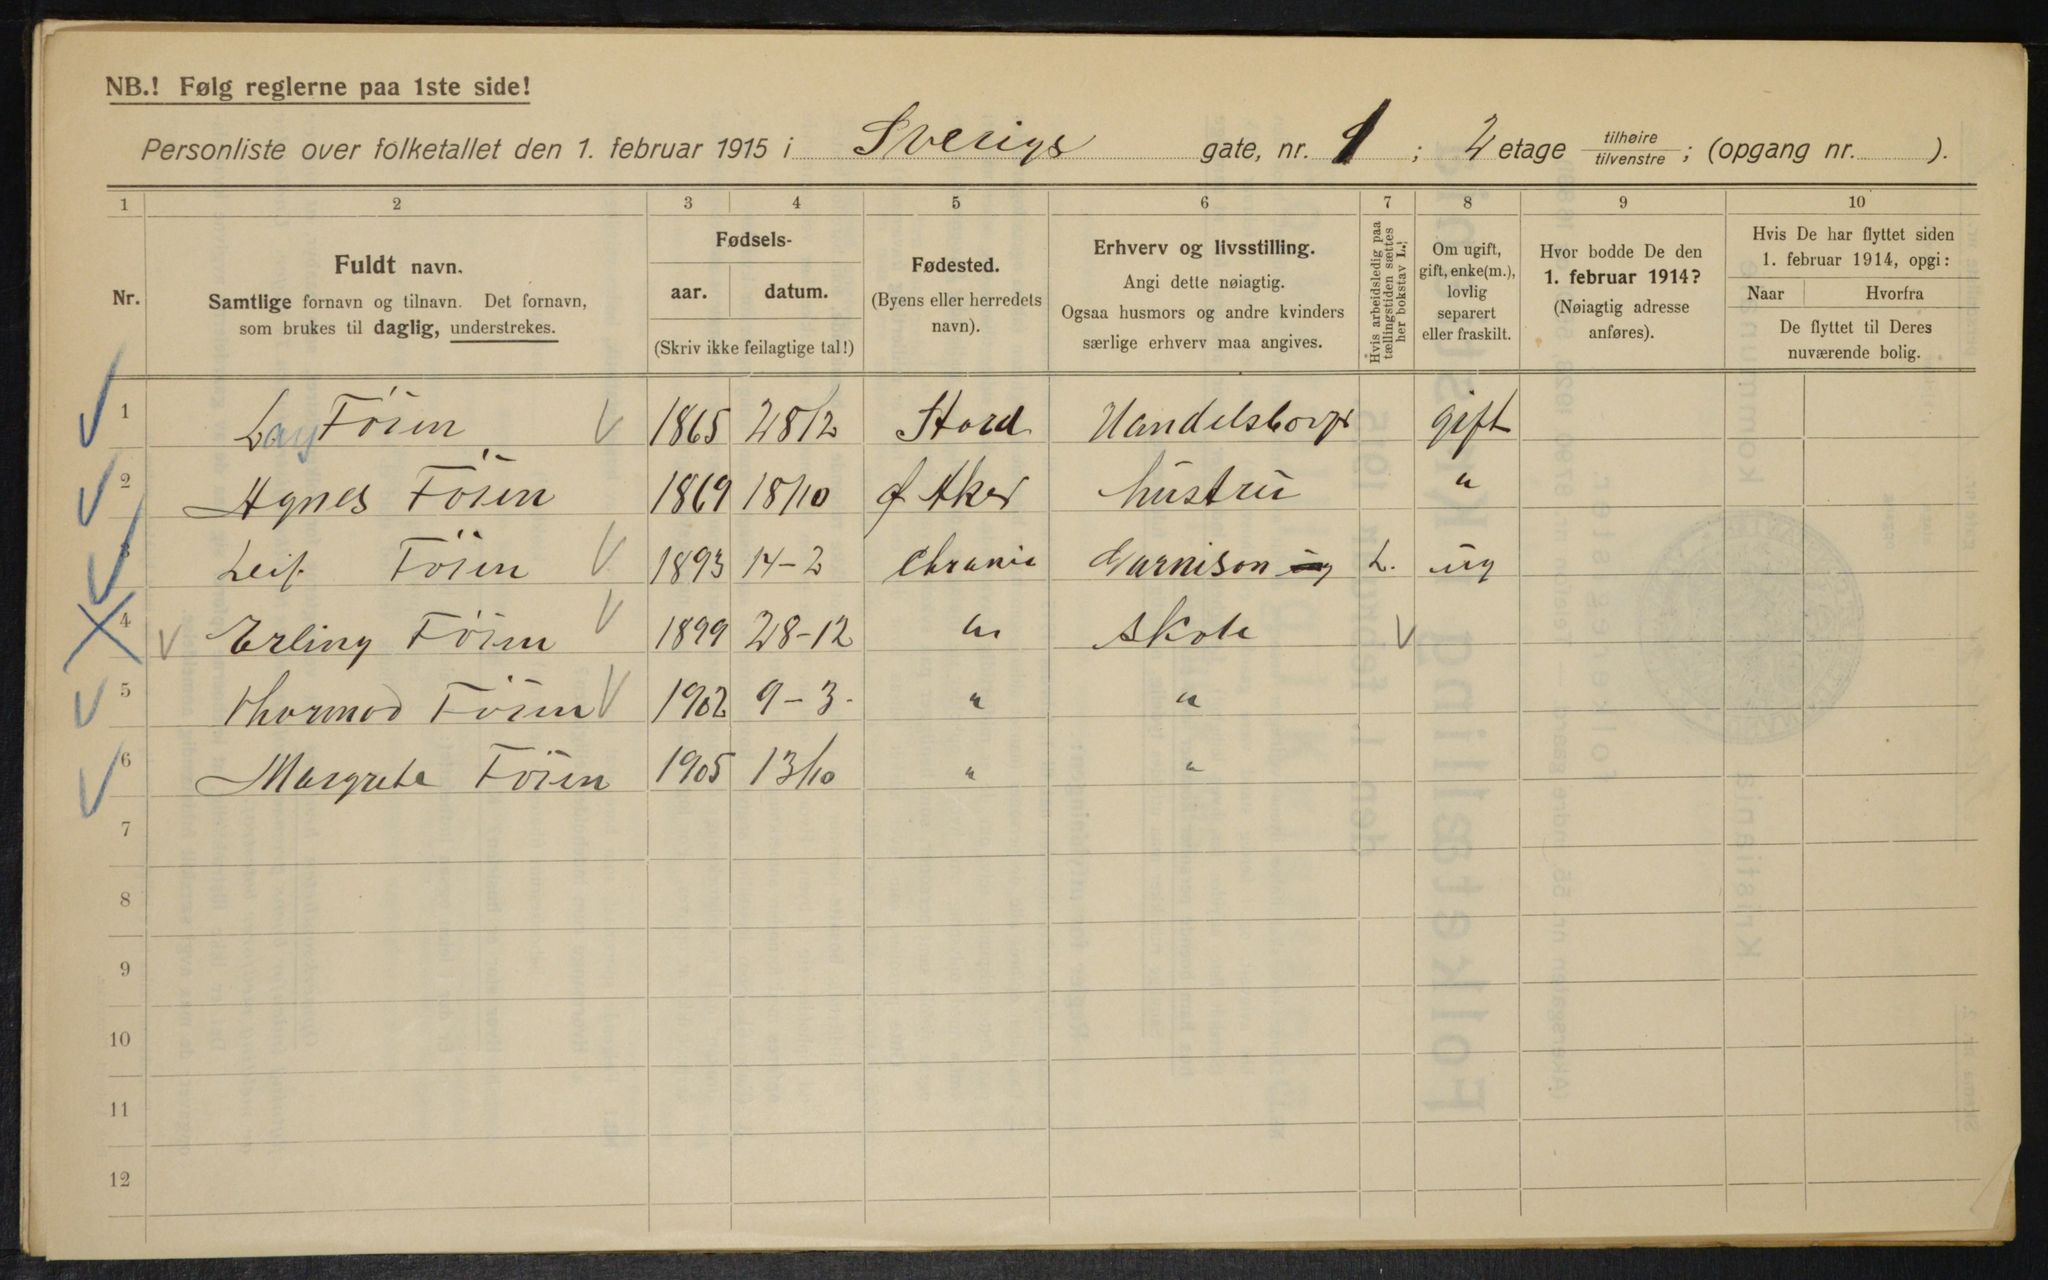 NB.! Følg reglerne paa 1ste side!
Personliste over folketallet den 1. februar 1915 i Sverigs gate, nr. 1 ; 2 etage tilhøire/tilvenstre ; (opgang nr. ).
1 2 3 4 5 6 7 8 9 10
Nr.
Fuldt navn.
Samtlige fornavn og tilnavn. Det fornavn,
som brukes til daglig, understrekes.
Fødsels-
aar. datum.
(Skriv ikke feilagtige tal!)
Fødested.
(Byens eller herredets
navn).
Erhverv og livsstilling.
Angi dette nøiagtig.
Ogsaa husmors og andre kvinders
særlige erhverv maa angives.
Hvis arbeidsledig paa
tællingstiden sættes
her bokstav L.!
Om ugift,
gift, enke(m.),
lovlig
separert
eller fraskilt.
Hvor bodde De den
1. februar 1914?
(Nøiagtig adresse
anføres).
Hvis De har flyttet siden
1. februar 1914, opgi:
Naar Hvorfra
De flyttet til Deres
nuværende bolig.
1 Föien 1865 28/2 Stord Handelsborgr gift
2 Agnes Föien 1869 18/10 Ø Aker hustru "
3 Leif Föien 1893 14-2 Chrania Garnison L. ug
4 Erling Föien 1899 28-12 " Skole
5 Thormod Föien 1902 9-3. " "
6 Margrete Föien 1905 13/10 " "
7
8
9
10
11
12